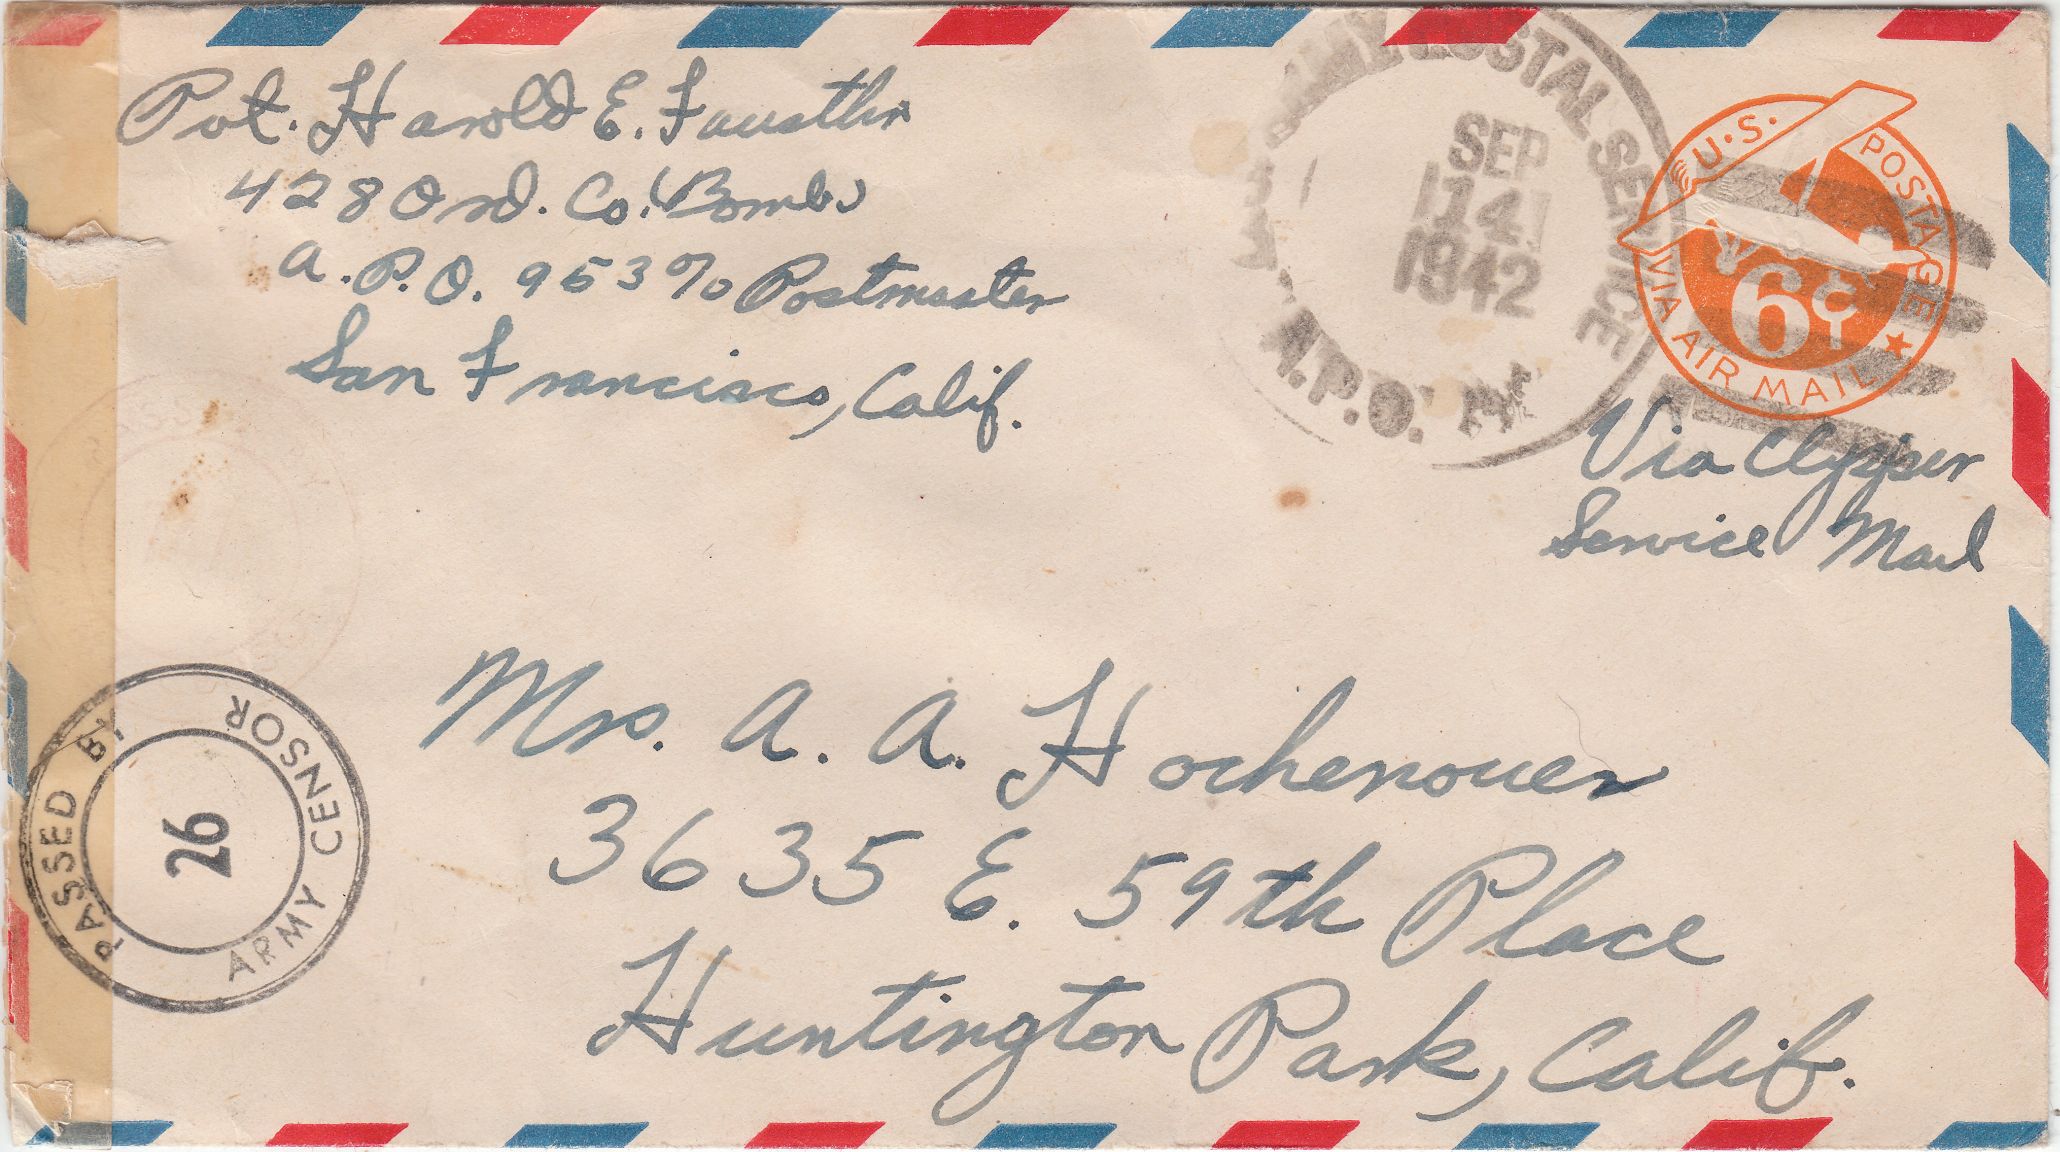 Pvt. Harold E. Faustlin
428 Ord. Co. (Bomb.)
A.P.O. 953 % Postmaster
San Francisco, Calif.
ARMY POSTAL SERVICE
SEP
14
1942
A.P.O.
U.S. POSTAGE
6¢
VIA AIR MAIL
Via Clipper
Service Mail
PASSED BY
26
ARMY CENSOR
Mrs. A. A. Hochenouer
3635 E. 59th Place
Huntington Park, Calif.